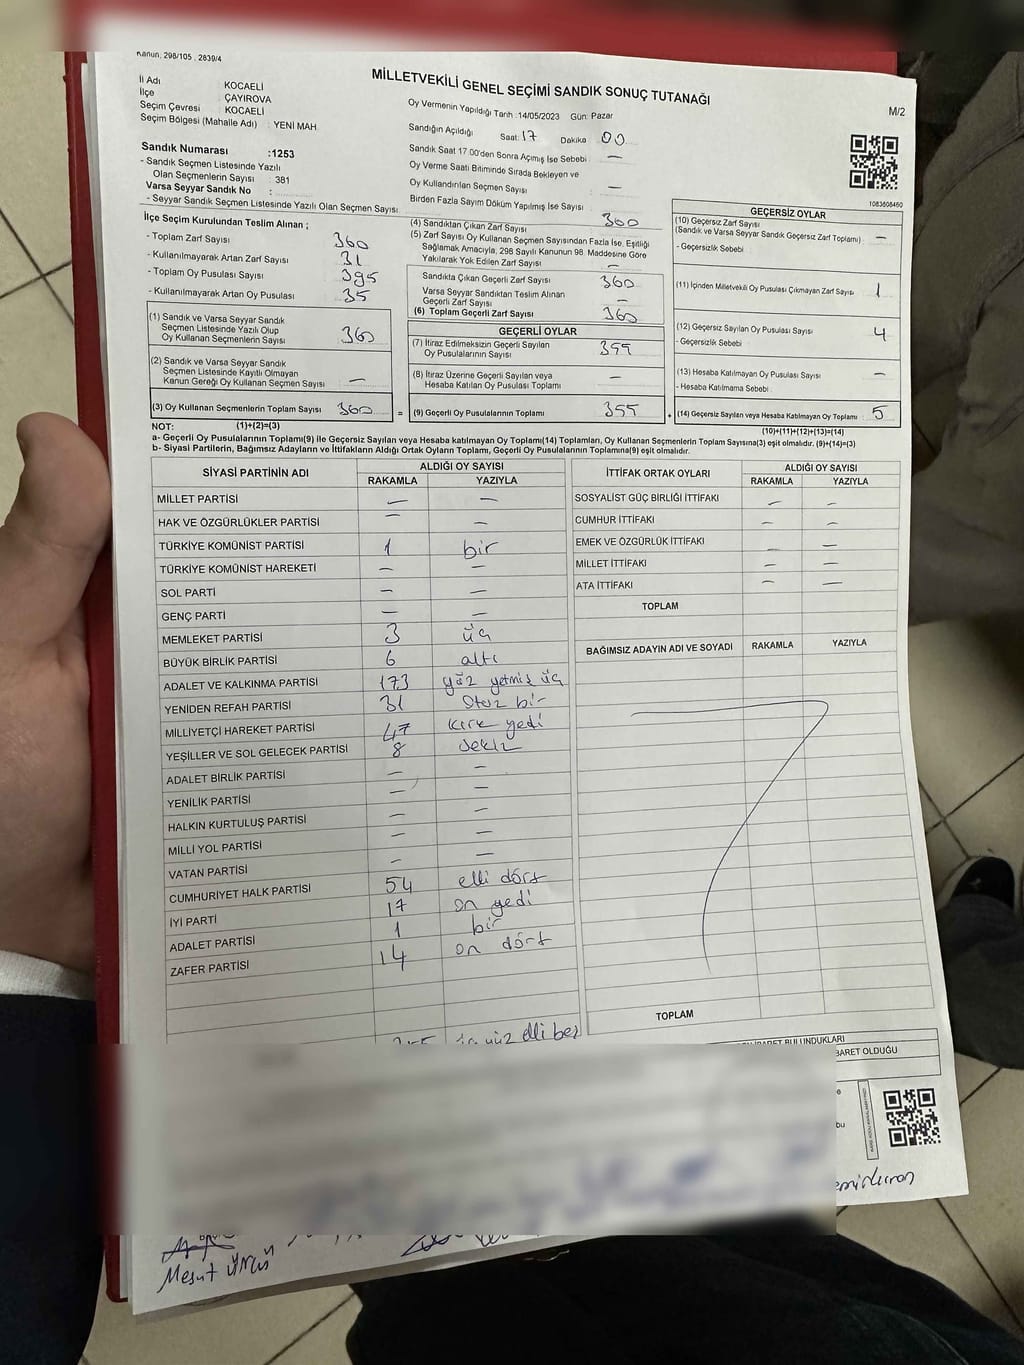 Kanun: 298/105 , 2839/4
MİLLETVEKİLİ GENEL SEÇİMİ SANDIK SONUÇ TUTANAĞI
M/2
İl Adı KOCAELİ
İlçe ÇAYIROVA
Seçim Çevresi KOCAELİ
Seçim Bölgesi (Mahalle Adı) : YENİ MAH
Sandık Numarası :1253
- Sandık Seçmen Listesinde Yazılı
Olan Seçmenlerin Sayısı : 381
Varsa Seyyar Sandık No :
- Seyyar Sandık Seçmen Listesinde Yazılı Olan Seçmen Sayısı
Oy Vermenin Yapıldığı Tarih : 14/05/2023 Gün: Pazar
Sandığın Açıldığı Saat: 17 Dakika 00
Sandık Saat 17.00'den Sonra Açılmış İse Sebebi : —
Oy Verme Saati Bitiminde Sırada Bekleyen ve
Oy Kullandırılan Seçmen Sayısı : —
Birden Fazla Sayım Döküm Yapılmış İse Sayısı
1083608460
İlçe Seçim Kurulundan Teslim Alınan ;
- Toplam Zarf Sayısı : 360
- Kullanılmayarak Artan Zarf Sayısı : 31
- Toplam Oy Pusulası Sayısı : 395
- Kullanılmayarak Artan Oy Pusulası : 35
(1) Sandık ve Varsa Seyyar Sandık
Seçmen Listesinde Yazılı Olup
Oy Kullanan Seçmenlerin Sayısı : 360
(2) Sandık ve Varsa Seyyar Sandık
Seçmen Listesinde Kayıtlı Olmayan
Kanun Gereği Oy Kullanan Seçmen Sayısı : —
(3) Oy Kullanan Seçmenlerin Toplam Sayısı : 360
(4) Sandıktan Çıkan Zarf Sayısı : 360
(5) Zarf Sayısı Oy Kullanan Seçmen Sayısından Fazla İse, Eşitliği
Sağlamak Amacıyla, 298 Sayılı Kanunun 98. Maddesine Göre
Yakılarak Yok Edilen Zarf Sayısı : —
Sandıkta Çıkan Geçerli Zarf Sayısı : 360
Varsa Seyyar Sandıktan Teslim Alınan
Geçerli Zarf Sayısı : —
(6) Toplam Geçerli Zarf Sayısı : 360
GEÇERLİ OYLAR
(7) İtiraz Edilmeksizin Geçerli Sayılan
Oy Pusulalarının Sayısı : 355
(8) İtiraz Üzerine Geçerli Sayılan veya
Hesaba Katılan Oy Pusulası Toplamı : —
= (9) Geçerli Oy Pusulalarının Toplamı : 355
GEÇERSİZ OYLAR
(10) Geçersiz Zarf Sayısı
(Sandık ve Varsa Seyyar Sandık Geçersiz Zarf Toplamı) : —
- Geçersizlik Sebebi
(11) İçinden Milletvekili Oy Pusulası Çıkmayan Zarf Sayısı : 1
(12) Geçersiz Sayılan Oy Pusulası Sayısı : 4
- Geçersizlik Sebebi :
(13) Hesaba Katılmayan Oy Pusulası Sayısı : —
- Hesaba Katılmama Sebebi :
+ (14) Geçersiz Sayılan veya Hesaba Katılmayan Oy Toplamı : 5
NOT: (1)+(2)=(3) (10)+(11)+(12)+(13)=(14)
a- Geçerli Oy Pusulalarının Toplamı(9) ile Geçersiz Sayılan veya Hesaba katılmayan Oy Toplamı(14) Toplamları, Oy Kullanan Seçmenlerin Toplam Sayısına(3) eşit olmalıdır. (9)+(14)=(3)
b- Siyasi Partilerin, Bağımsız Adayların ve İttifakların Aldığı Ortak Oyların Toplamı, Geçerli Oy Pusulalarının Toplamına(9) eşit olmalıdır.
SİYASİ PARTİNİN ADI ALDIĞI OY SAYISI
RAKAMLA YAZIYLA
MİLLET PARTİSİ — —
HAK VE ÖZGÜRLÜKLER PARTİSİ — —
TÜRKİYE KOMÜNİST PARTİSİ 1 bir
TÜRKİYE KOMÜNİST HAREKETİ — —
SOL PARTİ — —
GENÇ PARTİ — —
MEMLEKET PARTİSİ 3 üç
BÜYÜK BİRLİK PARTİSİ 6 altı
ADALET VE KALKINMA PARTİSİ 173 yüz yetmiş üç
YENİDEN REFAH PARTİSİ 31 Otuz bir
MİLLİYETÇİ HAREKET PARTİSİ 47 kırk yedi
YEŞİLLER VE SOL GELECEK PARTİSİ 8 sekiz
ADALET BİRLİK PARTİSİ — —
YENİLİK PARTİSİ — —
HALKIN KURTULUŞ PARTİSİ — —
MİLLİ YOL PARTİSİ — —
VATAN PARTİSİ — —
CUMHURİYET HALK PARTİSİ 54 elli dört
İYİ PARTİ 17 on yedi
ADALET PARTİSİ 1 bir
ZAFER PARTİSİ 14 on dört
355 üç yüz elli beş
İTTİFAK ORTAK OYLARI ALDIĞI OY SAYISI
RAKAMLA YAZIYLA
SOSYALİST GÜÇ BİRLİĞİ İTTİFAKI — —
CUMHUR İTTİFAKI — —
EMEK VE ÖZGÜRLÜK İTTİFAKI — —
MİLLET İTTİFAKI — —
ATA İTTİFAKI — —
TOPLAM
BAĞIMSIZ ADAYIN ADI VE SOYADI RAKAMLA YAZIYLA
TOPLAM
BULUNDUKLARI
BARET OLDUĞU
Mesut